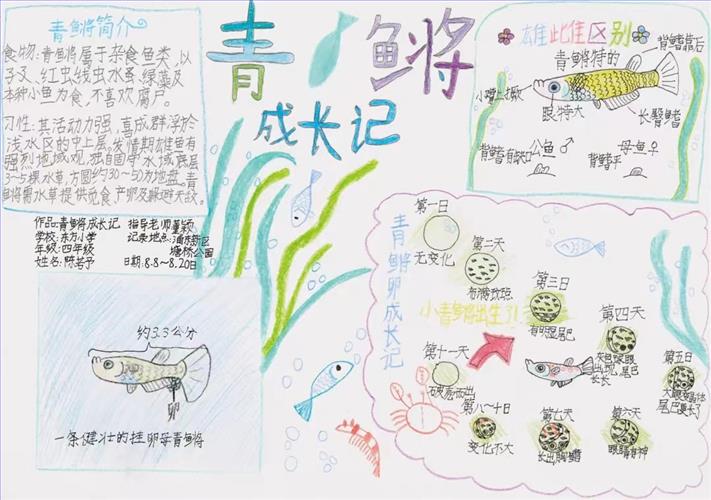 青鳉简介
食物:青鳉属于杂食鱼类,以
孑孓、红虫、线虫、水蚤、绿藻及
本种小鱼为食,不喜欢腐尸。
习性:其活动力强,喜成群浮於
浅水区的中上层。发情期雄鱼有
强烈地域观,独自固守水域底层
3~5棵水草,方圆约30~50为地盘。青
鳉需水草提供觅食、产卵及躲避天敌。
作品:青鳉成长记 指导老师董颖
学校:东方小学 记录地点:浦东新区
年级:四年级 塘桥公园
姓名:陈若予 日期:8.8~8.20日
青鳉
成长记
雄雌区别
青鳉特的
背鳍靠后
小嘴上撇
眼特大
长臀鳍
公鱼♂ 母鱼♀
背鳍有缺口 背鳍平
约3.3公分
卵
一条健壮的挂卵母青鳉
青鳉卵成长记
第一日
无变化
第二天
布满斑点
第三日
有明显尾巴
第四天
灰色眼眼
出现,尾巴
长长
第五日
大眼变晶体
尾巴更长了
第六天
眼睛有神
第七天
长出胸鳍
第八~十日
变化不大
第十一天
破壳而出
小青鳉出生了!